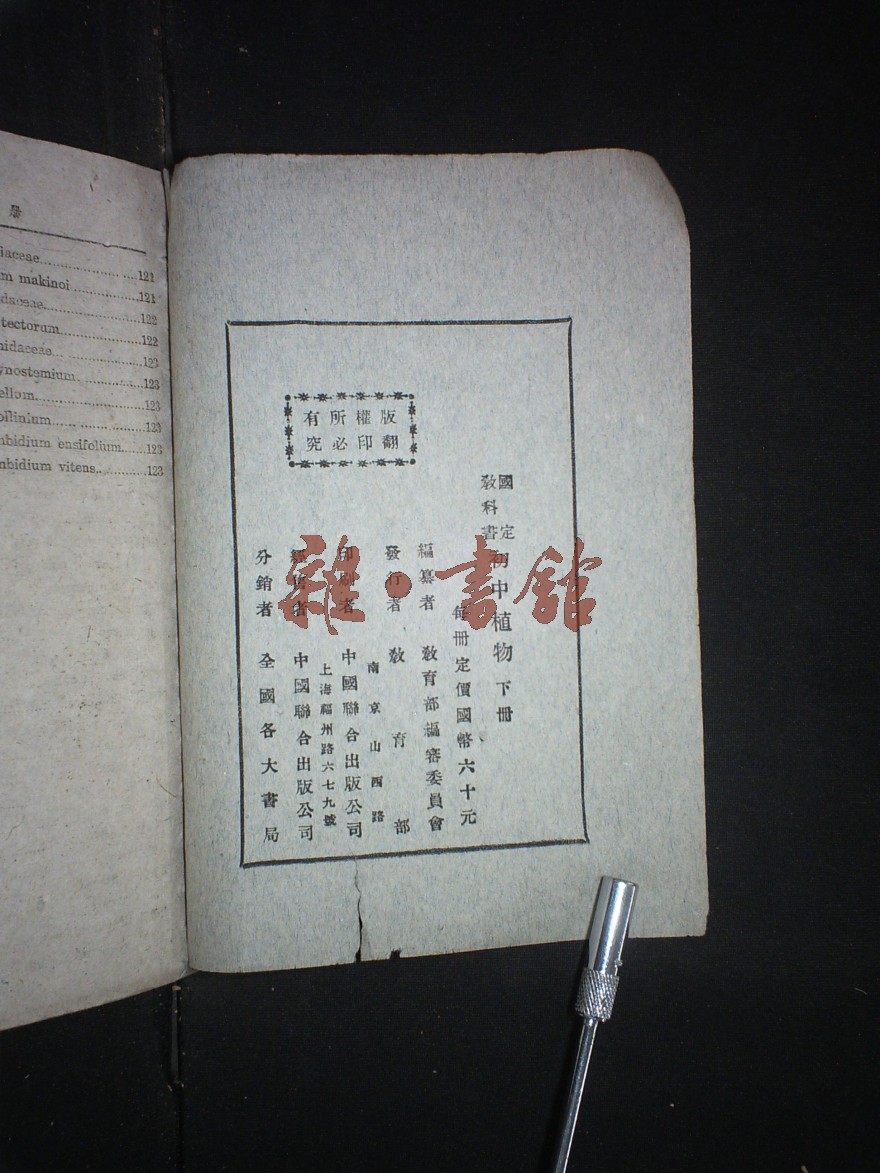 册
iaceae......121
m makinoi......121
daceae......122
tectorum......122
nidaceae......123
ynostemium......123
ellum......123
oilinium......123
nbidium ensifolium......123
nbidium vitens......123
版權所有
翻印必究
國定
教科書
初中植物 下册
每册定價國幣六十元
編纂者 教育部編審委員會
發行者 教育部
南京山西路
印刷者 中國聯合出版公司
上海福州路六七九號
經售者 中國聯合出版公司
分銷者 全國各大書局
雜·書館